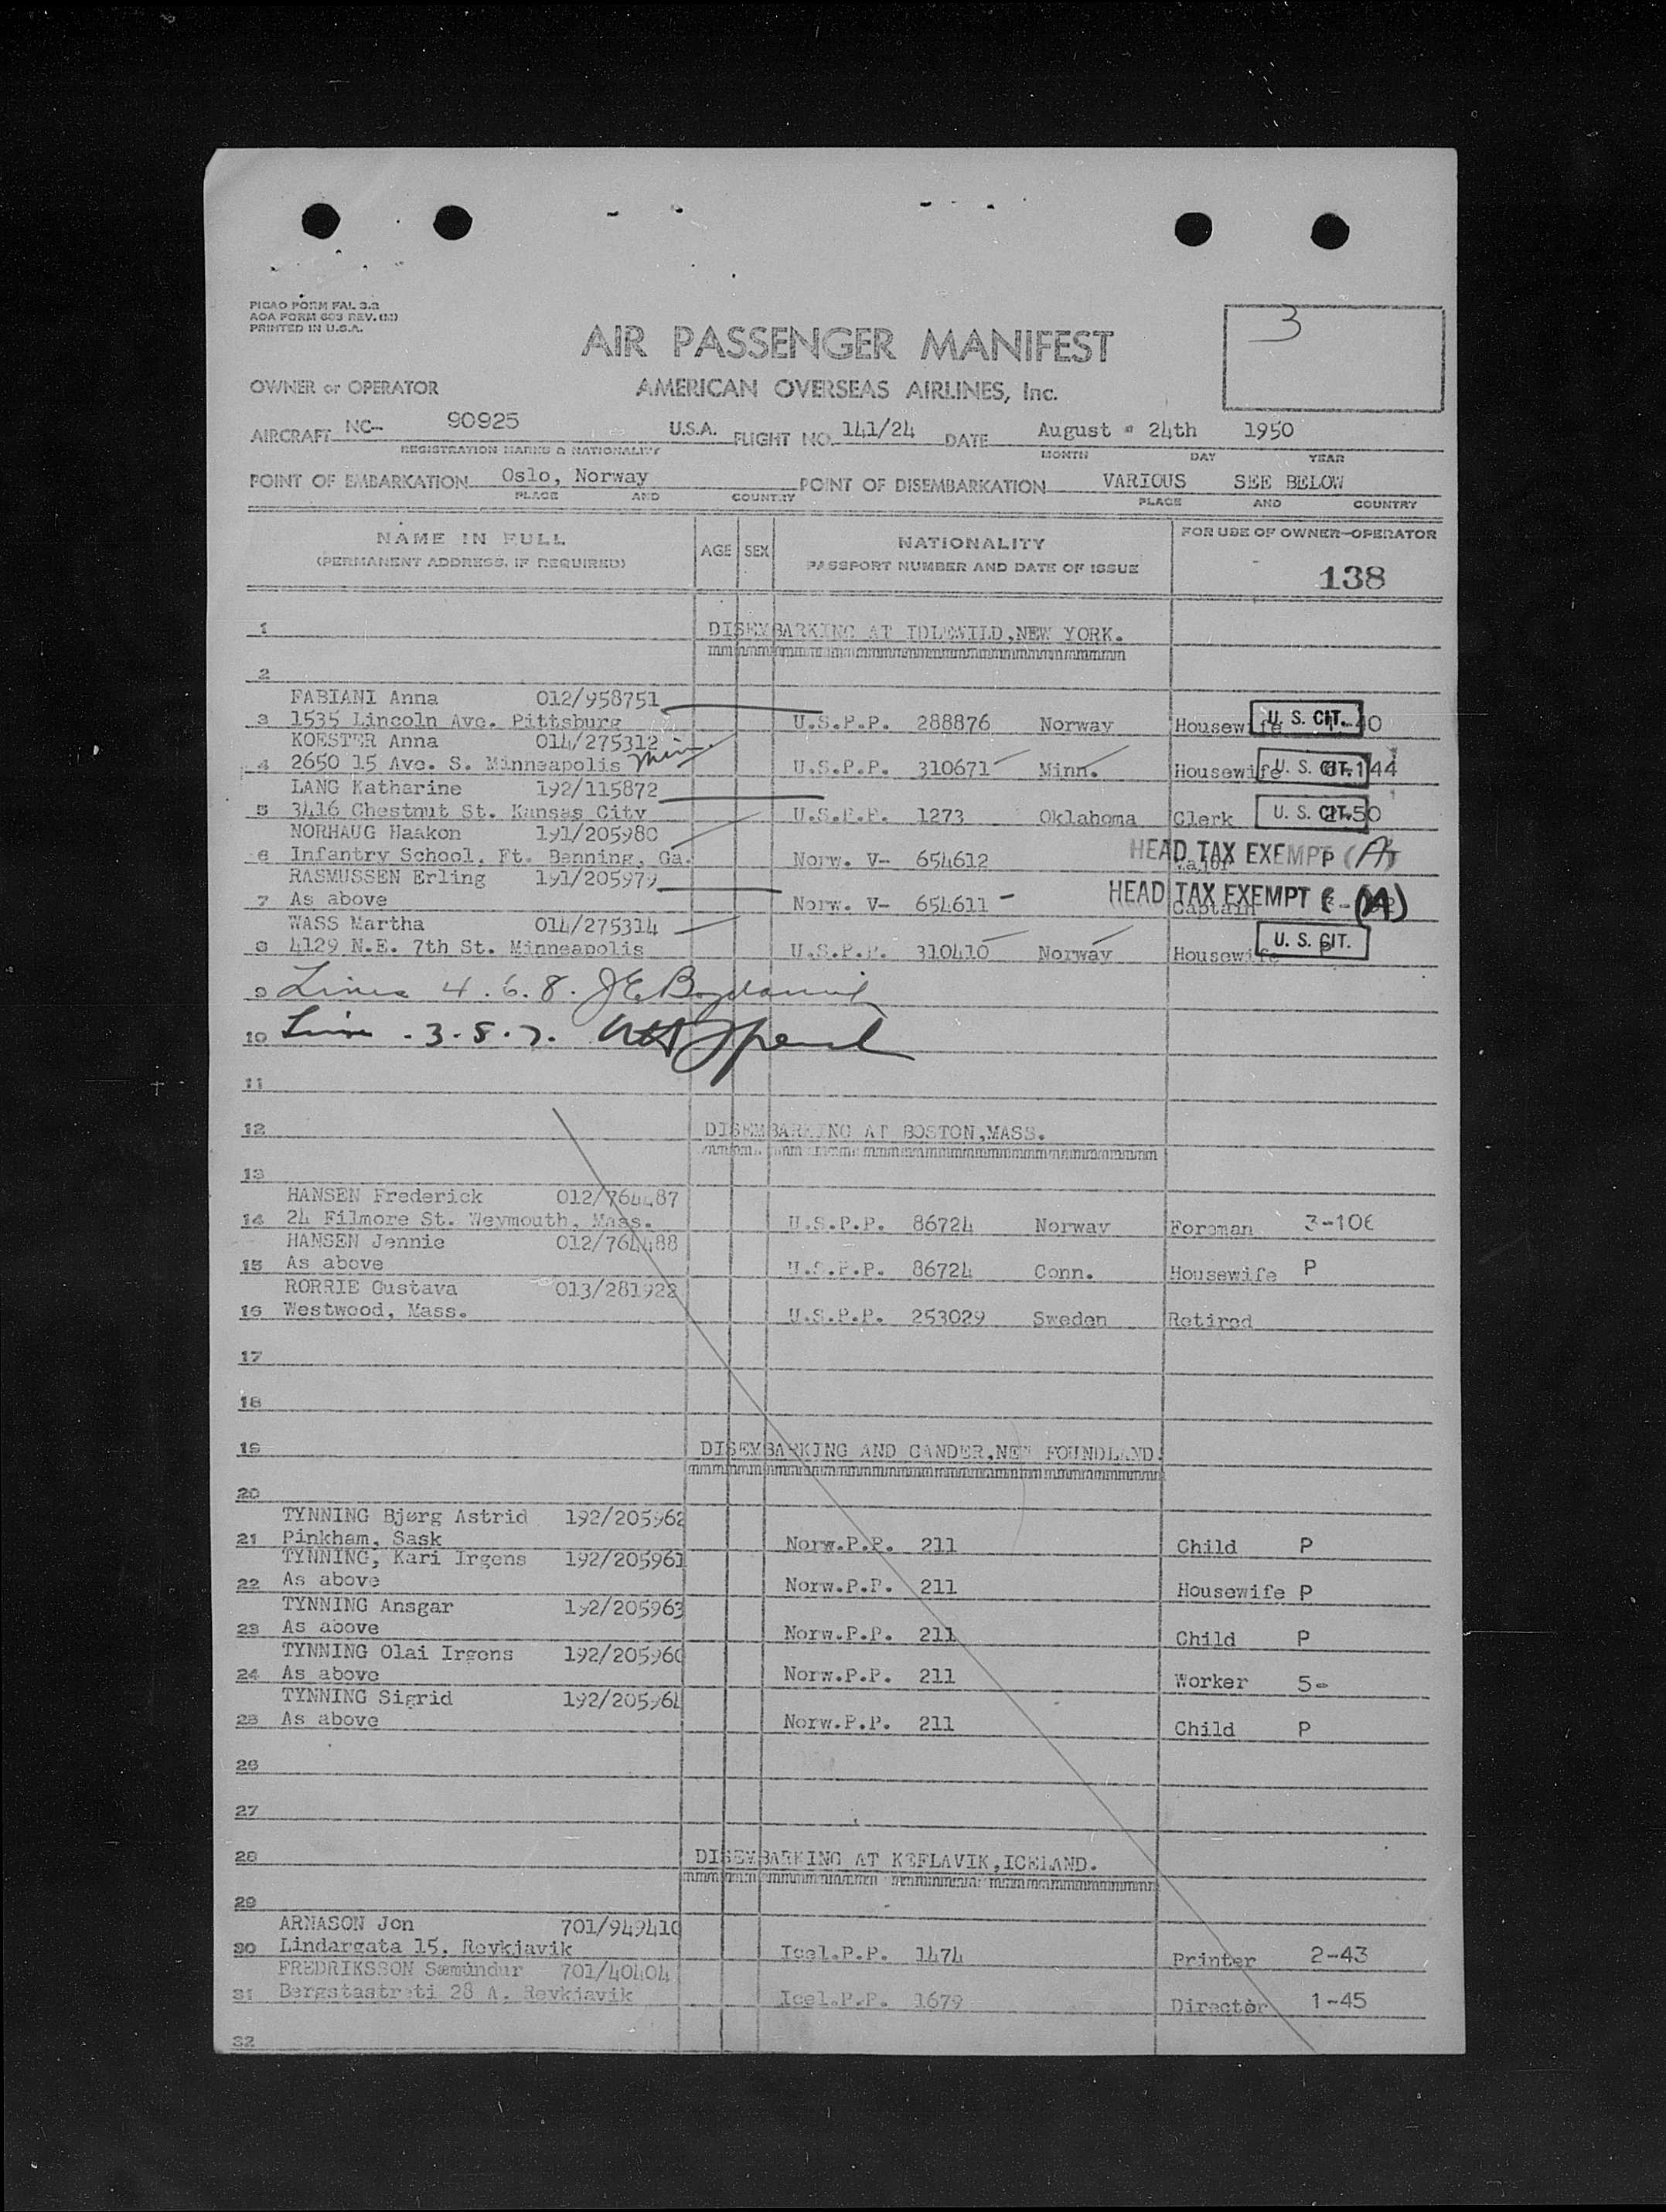 PICAO FORM FAL 3.3
AOA FORM 603 REV. (M)
PRINTED IN U.S.A.
3
AIR PASSENGER MANIFEST
OWNER or OPERATOR AMERICAN OVERSEAS AIRLINES, Inc.
AIRCRAFT NC- 90925 U.S.A. FLIGHT NO. 141/24 DATE August 24th 1950
REGISTRATION MARKS & NATIONALITY MONTH DAY YEAR
POINT OF EMBARKATION Oslo, Norway POINT OF DISEMBARKATION VARIOUS SEE BELOW
PLACE AND COUNTRY PLACE AND COUNTRY
NAME IN FULL AGE SEX NATIONALITY FOR USE OF OWNER-OPERATOR
(PERMANENT ADDRESS, IF REQUIRED) PASSPORT NUMBER AND DATE OF ISSUE 138
1 DISEMBARKING AT IDLEWILD,NEW YORK.
2
FABIANI Anna 012/958751
3 1535 Lincoln Ave. Pittsburg U.S.P.P. 288876 Norway Housewife U. S. CIT.
KOESTER Anna 014/275312
4 2650 15 Ave. S. Minneapolis Minn. U.S.P.P. 310671 Minn. Housewife U. S. CIT. 144
LANG Katharine 192/115872
5 3416 Chestnut St. Kansas City U.S.P.P. 1273 Oklahoma Clerk U. S. CIT. 50
NORHAUG Haakon 191/205980
6 Infantry School, Ft. Benning, Ga. Norw. V- 654612 Major HEAD TAX EXEMPT P (A)
RASMUSSEN Erling 191/205979
7 As above Norw. V- 654611 Captain HEAD TAX EXEMPT (A)
WASS Martha 014/275314
8 4129 N.E. 7th St. Minneapolis U.S.P.P. 310410 Norway Housewife U. S. CIT. P
9 Lines 4.6.8.
10 Line .3.5.7.
11
12 DISEMBARKING AT BOSTON,MASS.
13
HANSEN Frederick 012/764487
14 24 Filmore St. Weymouth, Mass. U.S.P.P. 86724 Norway Foreman 3-106
HANSEN Jennie 012/764488
15 As above U.S.P.P. 86724 Conn. Housewife P
RORRIE Gustava 013/281922
16 Westwood, Mass. U.S.P.P. 253029 Sweden Retired
17
18
19 DISEMBARKING AND GANDER,NEW FOUNDLAND.
20
TYNNING Bjørg Astrid 192/205962
21 Pinkham, Sask Norw.P.P. 211 Child P
TYNNING, Kari Irgens 192/205961
22 As above Norw.P.P. 211 Housewife P
TYNNING Ansgar 192/205963
23 As above Norw.P.P. 211 Child P
TYNNING Olai Irgens 192/205960
24 As above Norw.P.P. 211 Worker 5-
TYNNING Sigrid 192/205964
25 As above Norw.P.P. 211 Child P
26
27
28 DISEMBARKING AT KEFLAVIK,ICELAND.
29
ARNASON Jon 701/949410
30 Lindargata 15, Reykjavik Icel.P.P. 1474 Printer 2-43
FREDRIKSSON Sæmundur 701/40404
31 Bergstastrati 28 A. Reykjavik Icel.P.P. 1679 Director 1-45
32